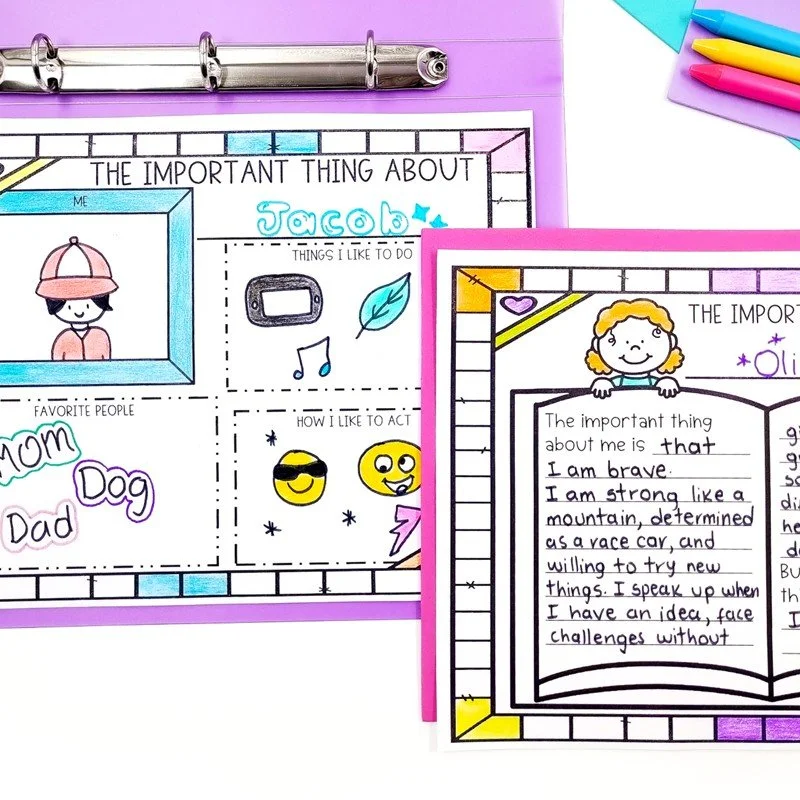 THE IMPORTANT THING ABOUT
Jacob
ME
THINGS I LIKE TO DO
FAVORITE PEOPLE
MOM
Dog
Dad
HOW I LIKE TO ACT
THE
The important thing
about me is that
I am brave.
I am strong like a
mountain, determined
as a race car, and
willing to try new
things. I speak up when
I have an idea, face
challenges without
Bu
I